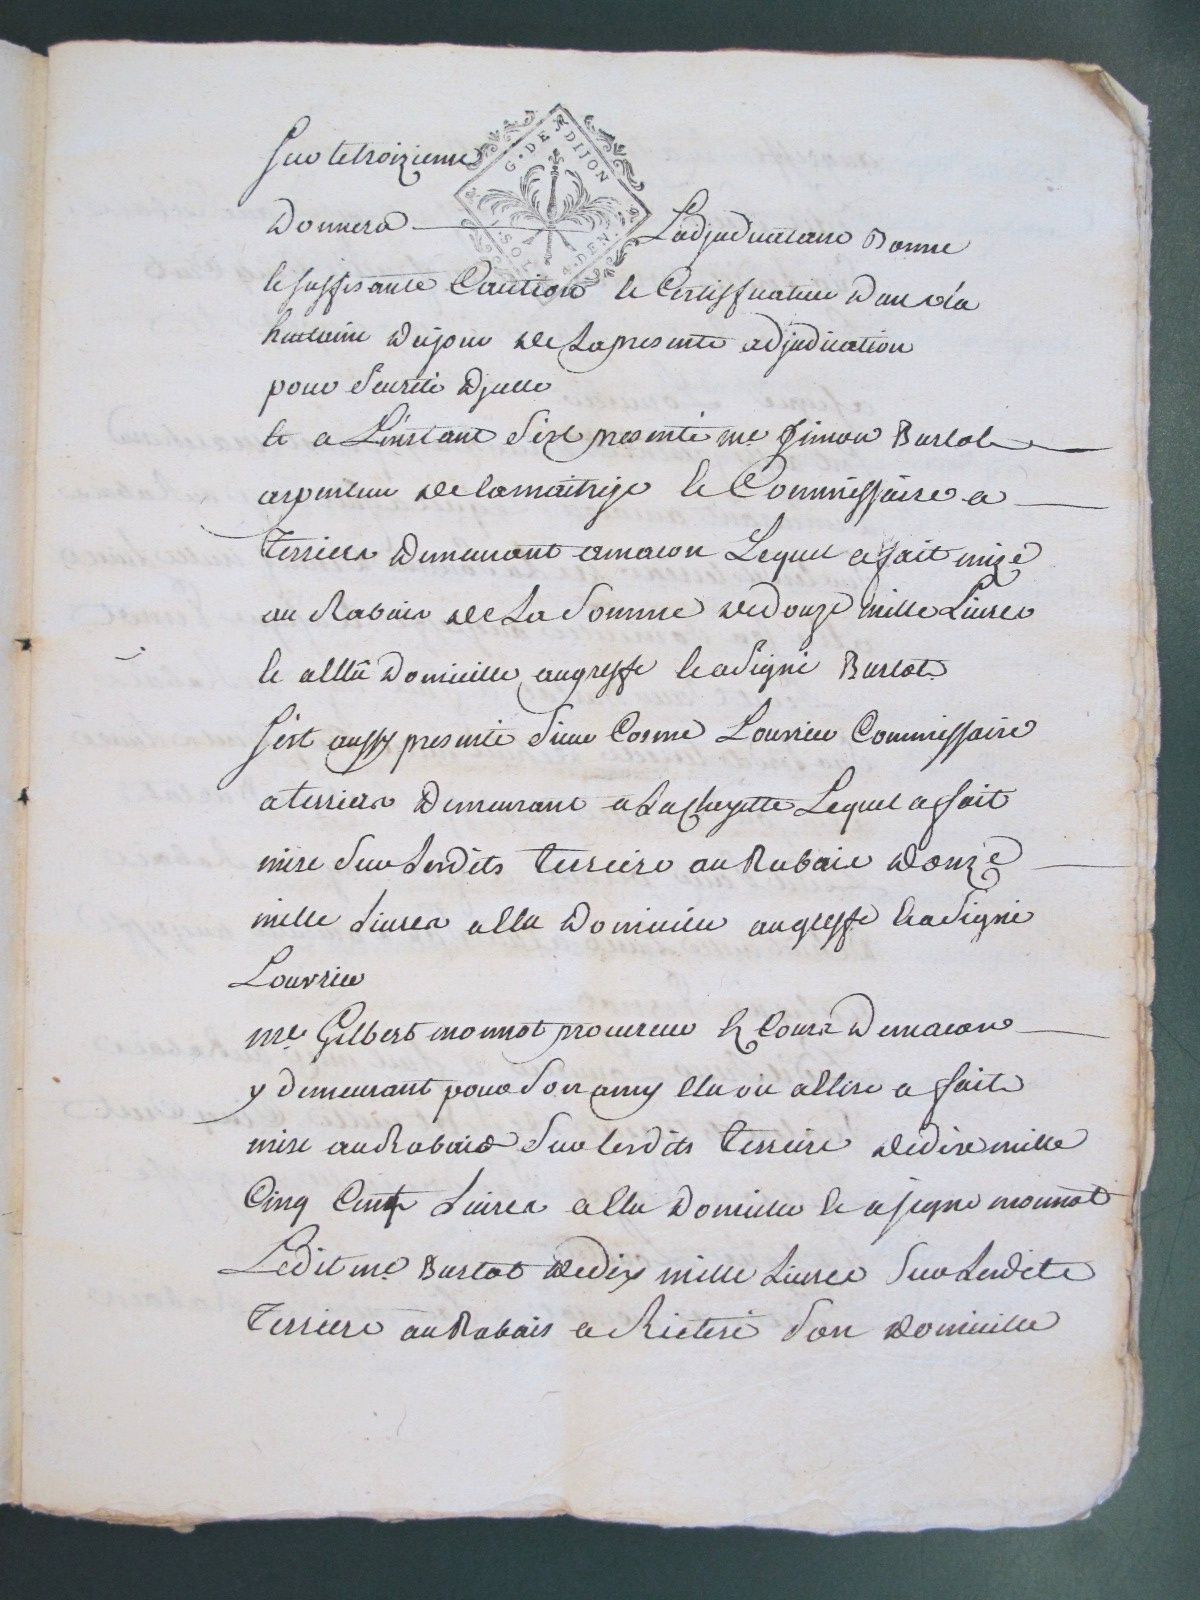 Sur le troizieme
G. DE DIJON
2 SOLS 4 DEN.
Donnera L'adjudicataire Bonne
et suffisante Caution et Certifficateur dans la
huitaine du jour de La presente adjudication
pour seureté d'icelle
Et a L'instant s'est presenté me Simon Burtot
arpenteur de la maitrise et Commissaire a
Terriers Demeurant a macon Lequel a fait mize
au Rabais de La Somme de douze mille Livres
et a Elu Domicille au greffe et a signé Burtot
S'est aussy presenté sieur Cosme Louvrier Commissaire
a terriers Demeurant a La Chayette Lequel a fait
mise sur Lesdits terriers au Rabais d'onze
mille Livres a Elu Domicile au greffe et a Signé
Louvrier
me Gilbert monnot procureur es Cours de macon
y demeurant pour son amy Elu ou a Elire a fait
mise au Rabais sur lesdits terriers de dix mille
Cinq Cent Livres a Elu Domicile et a signé monnot
Ledit me Burtot de dix mille Livres sur Lesdits
Terriers au Rabais a Reiteré son Domicille